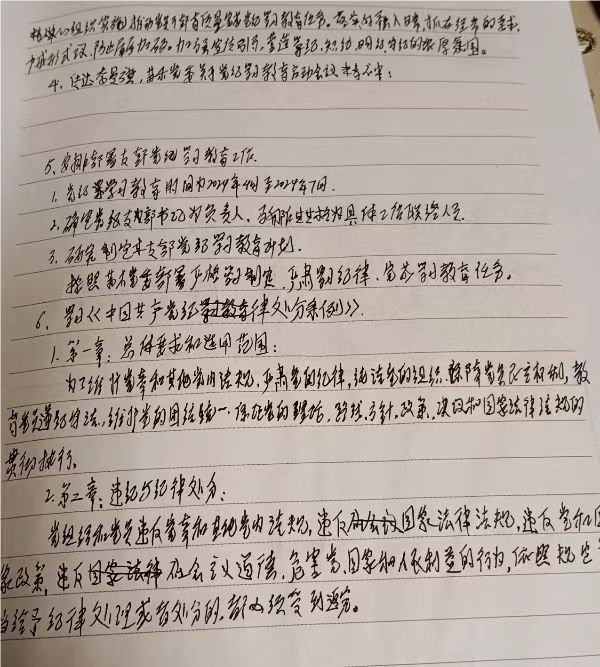 精心组织实施, 推动
十戒形式主义, 防止层层加码。加强宣传引导, 营造学纪、知纪、明纪、守纪的浓厚氛围。
4、传达
5、安排部署支部党纪学习教育工作.
1. 党纪学习教育时间为2024年4月至2024年7月.
2. 确定党支部书记为负责人, 为具体工作联络人员.
3. 研究制定本支部党纪学习教育计划.
按照党委部署严格学习制度, 严肃学习纪律, 完成学习教育任务。
6、学习《中国共产党纪律处分条例》.
1. 第一章: 总体要求和适用范围:
为了维护党章和其他党内法规, 严肃党的纪律, 纯洁党的组织, 保障党员民主权利, 教
育党员遵纪守法, 维护党的团结统一, 保证党的理论、路线、方针、政策、决议和国家法律法规的
贯彻执行。
2. 第二章: 违纪与纪律处分:
党组织和党员违反党章和其他党内法规, 违反国家法律法规, 违反党和国
家政策, 违反社会主义道德, 危害党、国家和人民利益的行为, 依照规定
给予纪律处理或者处分的, 都必须受到追究。